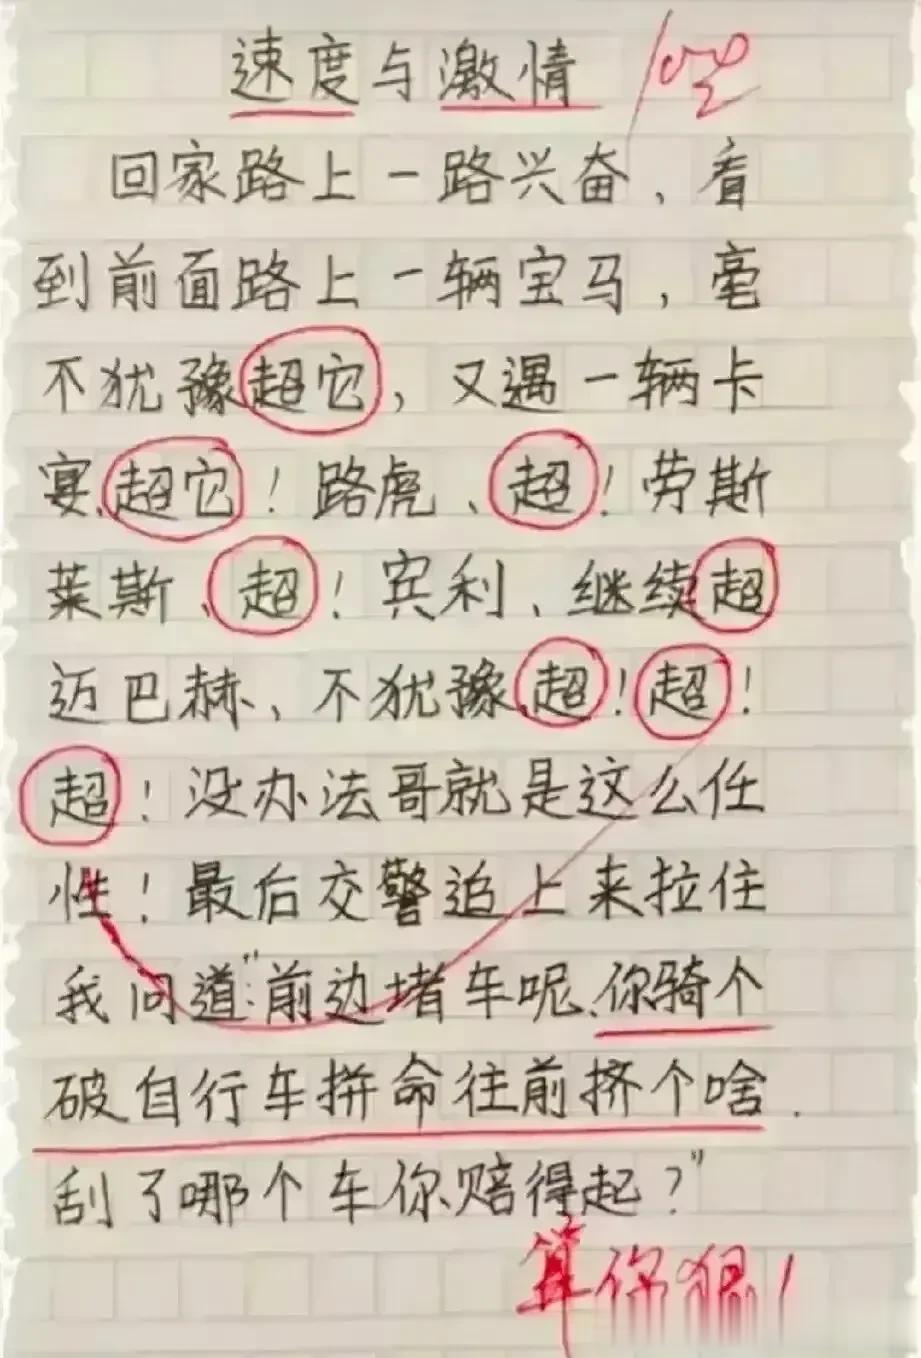 速度与激情 100
回家路上一路兴奋、看
到前面路上一辆宝马，毫
不犹豫超它，又遇一辆卡
宴、超它！路虎、超！劳斯
莱斯、超！宾利、继续超
迈巴赫、不犹豫、超！超！
超！没办法哥就是这么任
性！最后交警追上来拉住
我问道："前边堵车呢、你骑个
破自行车拼命往前挤个啥.
刮了哪个车你赔得起？"
算你狠！